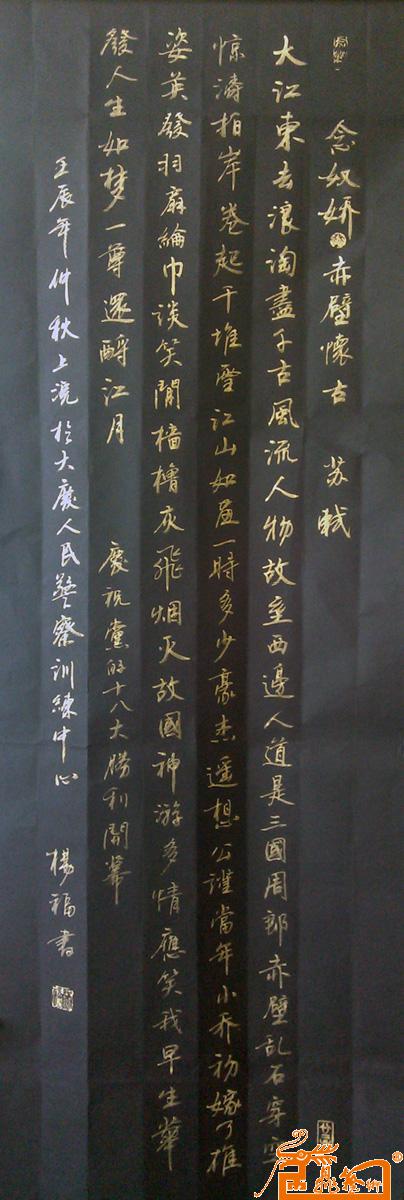 念奴娇 赤壁懷古 苏軾
大江東去浪淘盡千古風流人物故壘西邊人道是三國周郎赤壁乱石穿空
惊濤拍岸卷起千堆雪江山如画一時多少豪杰遥想公謹當年小乔初嫁了雄
姿英發羽扇綸巾谈笑間檣櫓灰飛烟灭故國神游多情應笑我早生華
發人生如梦一尊還酹江月 慶祝黨的十八大勝利開幕
壬辰年仲秋上浣於大慶人民警察训練中心 楊福書